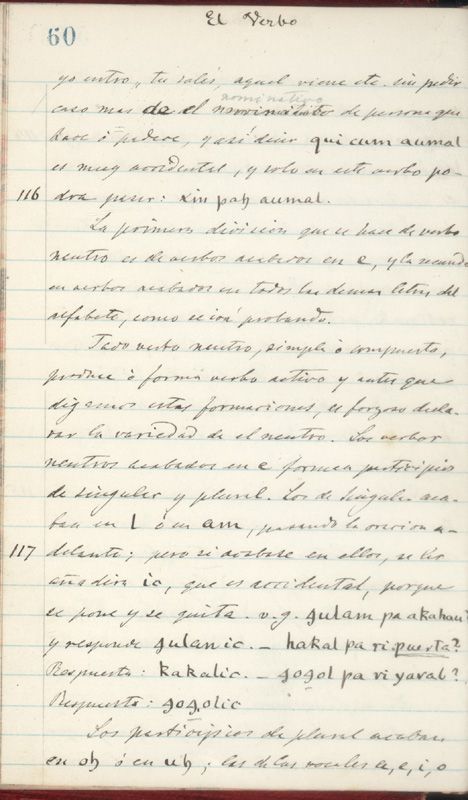 El Verbo
60
yo entro, tu sales, aquel viene etc. sin pedir
caso mas de el nominativo de persona que
hace ó padece, y asi decir qui cum aumal
es muy accidental, y solo en este verbo po-
116 dra pasar: xin paɧ aumal.
La primera division que se hace de verbo
neutro es de verbos acabados en e, y la segunda
en verbos acabados en todas las demas letras del
alfabeto, como se irá probando.
Todo verbo neutro, simple ó compuesto,
produce ó forma verbo activo y antes que
digamos estas formaciones, es forzoso decla-
rar la variedad de el neutro. Los verbos
neutros acabados en e forman participios
de singular y plural. Los de singular aca-
ban en l ó en am, pasando la oracion a-
117 delante; pero si acabase en ellos, se les
añadira ic, que es accidental, porque
se pone y se quita. v.g. gulam pa akahau?
y responde gulanic. – hakal pa ri puerta?
Respuesta: kakalic. – gogol pa ri yaval?
Respuesta: gogolic
Los participios de plural acaban
en oɧ ó en uɧ; las de las vocales a, e, i, o